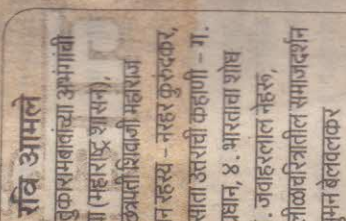 रवि आमले
तुकारामबाबांच्या अभंगांची
(महाराष्ट्र शासन),
छत्रपती शिवाजी महाराज
रहस्य – नरहर कुरुंदकर,
उत्तराची कहाणी – ग.
प्रधान, ४. भारताचा शोध
जवाहरलाल नेहरू,
लीळाचरित्रातील समाजदर्शन
सुमन बेलवलकर